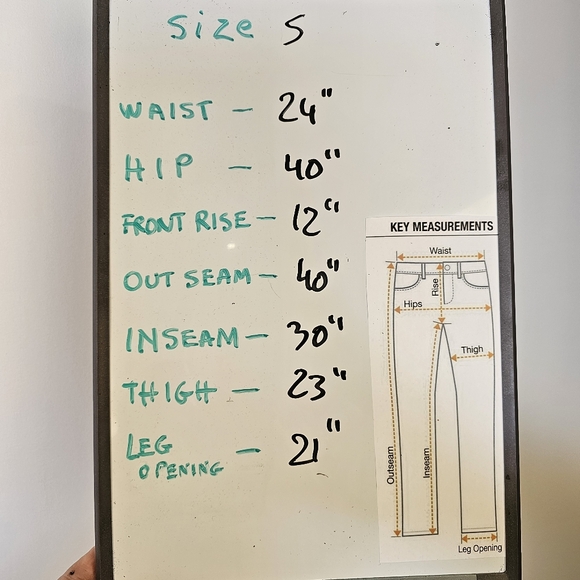 Size S
WAIST - 24"
HIP - 40"
FRONT RISE - 12"
OUT SEAM - 40"
INSEAM - 30"
THIGH - 23"
LEG
OPENING - 21"
KEY MEASUREMENTS
Waist
Rise
Hips
Thigh
Outseam
Inseam
Leg Opening